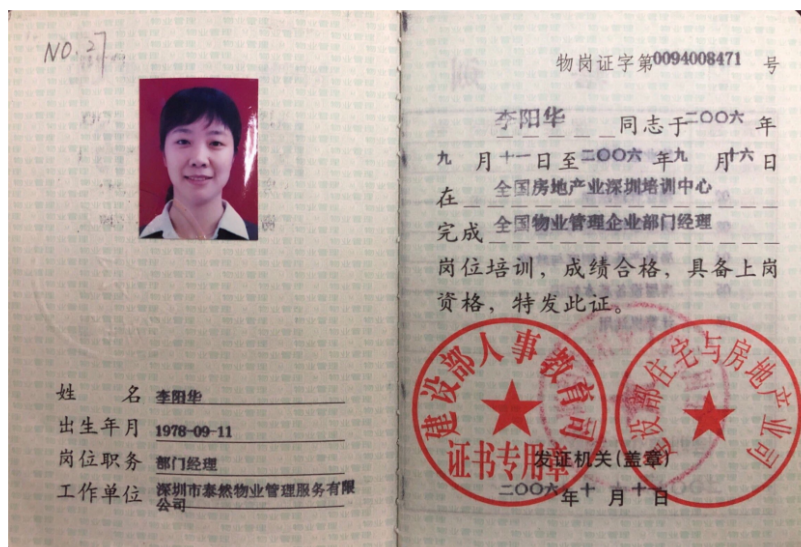 NO.27
姓 名 李阳华
出生年月 1978-09-11
岗位职务 部门经理
工作单位 深圳市泰然物业管理服务有限
公司
物岗证字第0094008471 号
李阳华 同志于二〇〇六 年
九 月十一日至二〇〇六 年九 月十六日
在 全国房地产业深圳培训中心
完成 全国物业管理企业部门经理
岗位培训，成绩合格，具备上岗
资格，特发此证。
建设部人事教育司
证书专用章
建设部住宅与房地产业司
发证机关(盖章)
二〇〇六年十 月十日